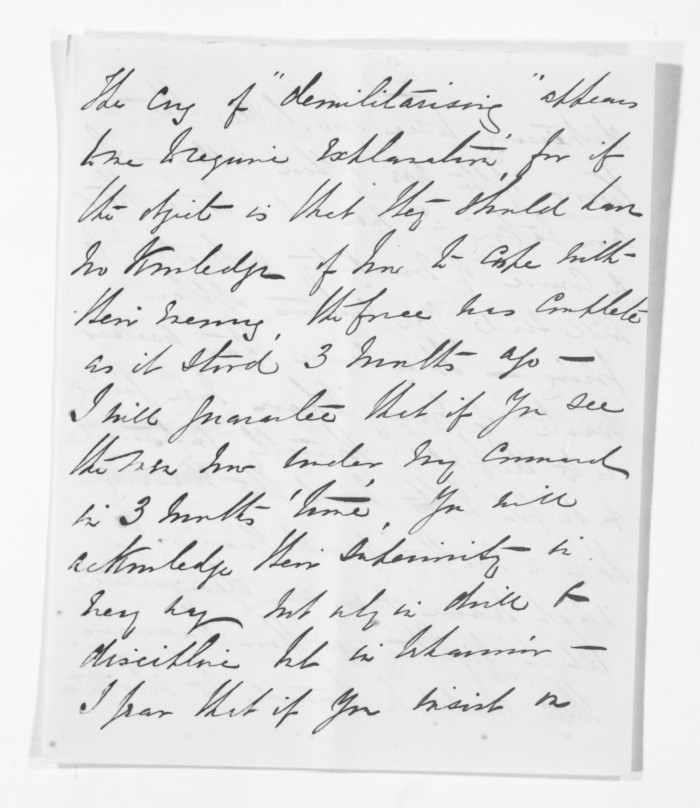 The cry of "demilitarising" appears
to me to require explanation, for if
the object is that they should have
no knowledge of how to cope with
their enemy, the force was complete
as it stood 3 months ago —
I will guarantee that if you see
the men now under my command
in 3 months' time, you will
acknowledge their in
every way not only in drill &
discipline but in behaviour —
I fear that if you insist on